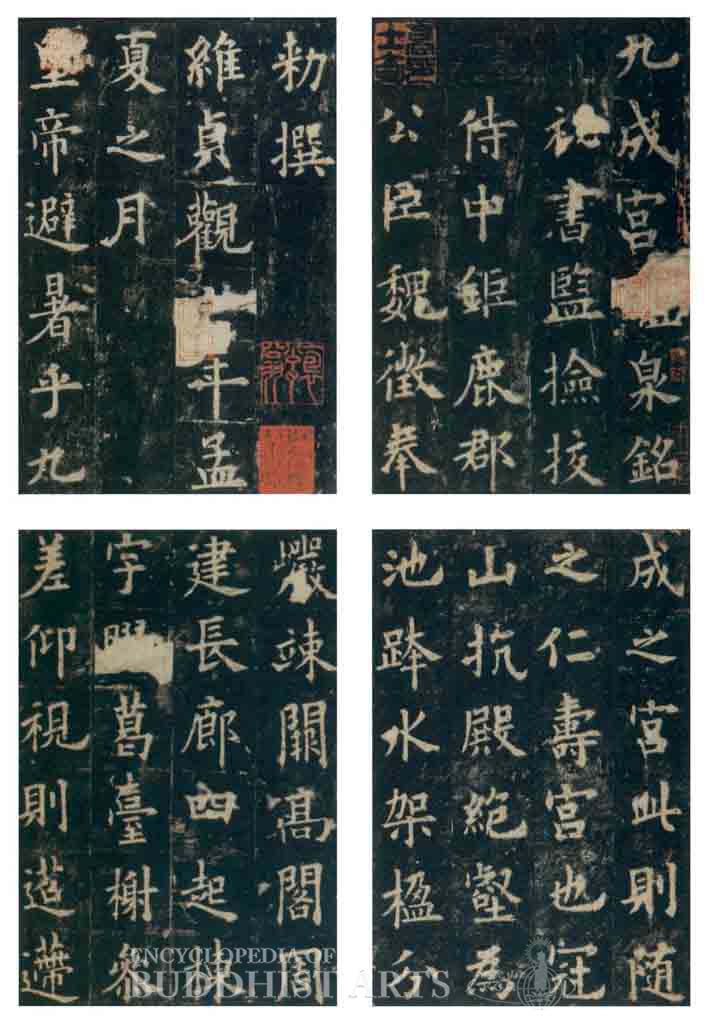 九成宮泉銘
秘書監撿挍
侍中鉅鹿郡
公臣魏徵奉
勑撰
維貞觀年孟
夏之月
皇帝避暑乎九
成之宮此則隨
之仁壽宮也冠
山抗殿絕壑為
池跨水架楹分
巖竦闕高閣周
建長廊四起棟
宇葛臺榭參
差仰視則迢遰
ENCYCLOPEDIA OF
BUDDHIST ARTS